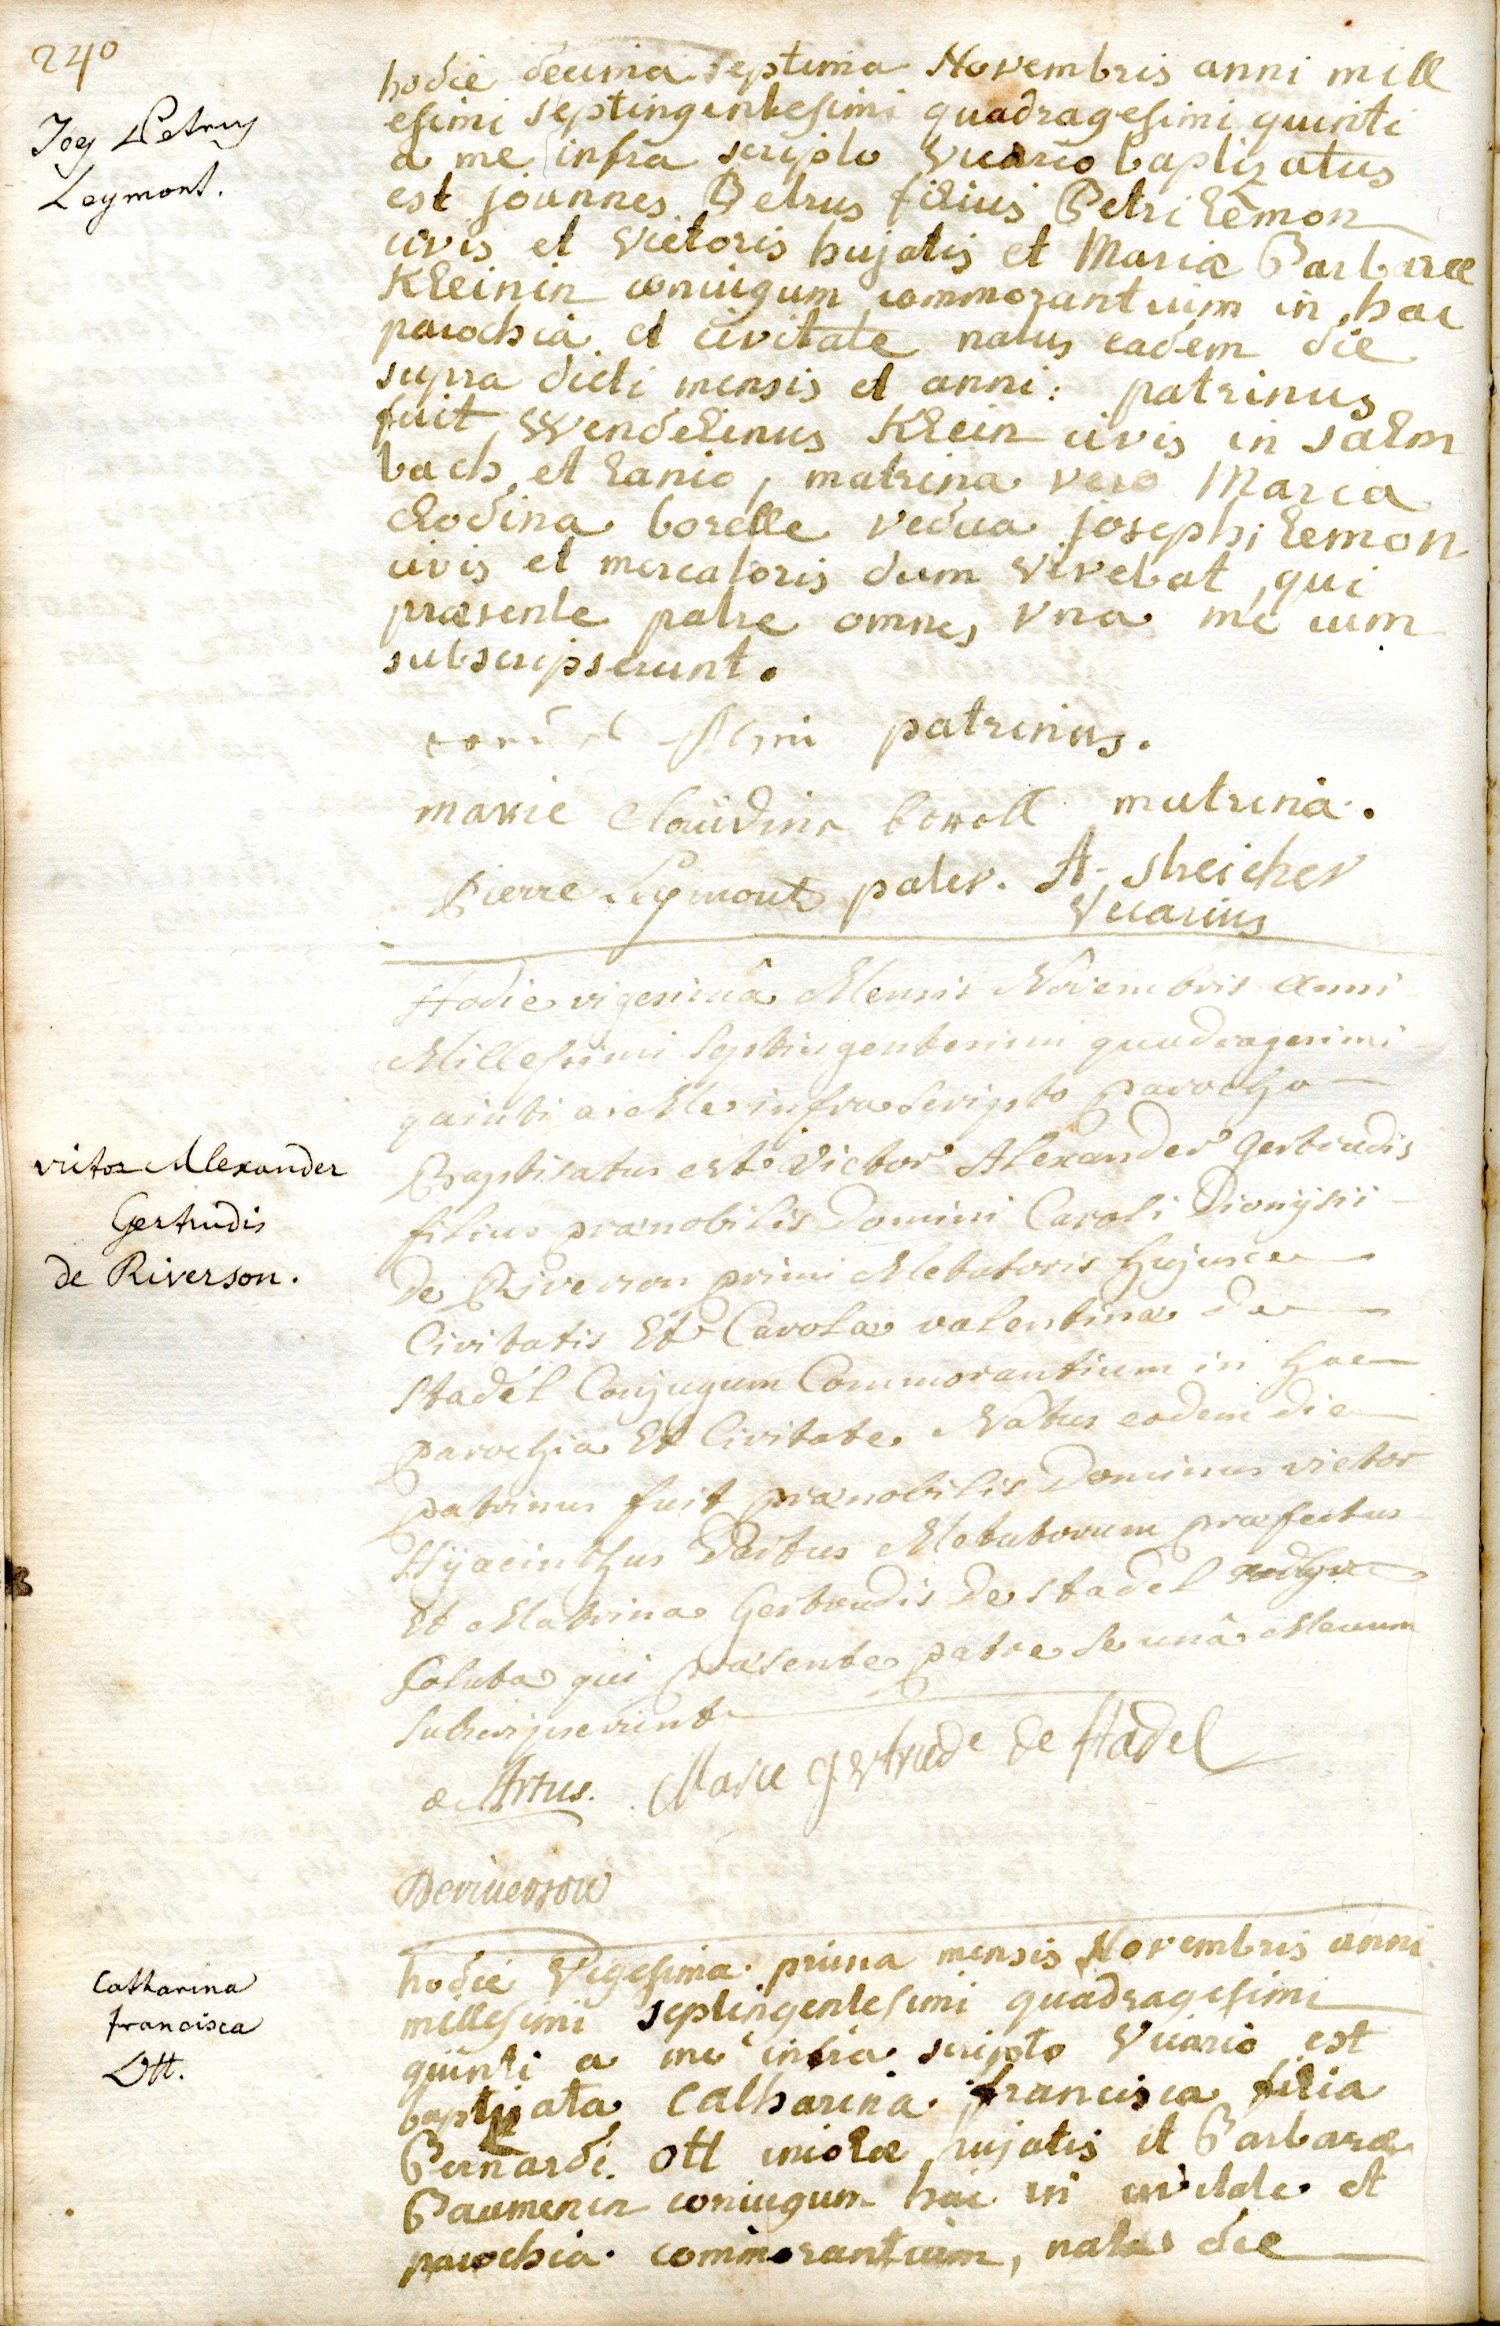 240
Joes Petrus
Leymont.
hodie decima septima Novembris anni mill
esimi septingentesimi quadragesimi quinti
a me infra scripto vicario baptizatus
est joannes Petrus filius Petri lemon
civis et vietoris hujatis et Mariæ Barbaræ
Kleinin coniugum commorantium in hac
parochia et civitate natus eadem die
supra dicti mensis et anni: patrinus
fuit Wendelinus Klein civis in salm
bach et lanio, matrina vero Maria
clodina borelle vedua josephi lemon
civis et mercatoris dum vivebat, qui
præsente patre omnes vna me cum
subscripserunt.
patrinus.
marie Claudine borell matrina.
Pierre Leymont pater. A. streicher
vicarius
victor Alexander
Gertrudis
de Riverson.
Hodie vigesimâ Mensis Novembris Anni
Millesimi Septingentesimi quadragesimi
quinti a Me infra scripto parocho
Baptisatus est Victor Alexander Gertrudis
filius prænobilis Domini Caroli Dionÿsii
de Riverson primi Metatoris hujusce
Civitatis Et Carolæ valentinæ de
Stadel Conjugum Commorantium in hac
parochia Et Civitate Natus eodem die
patrinus fuit prænobilis Dominus victor
Hÿacinthus Dartus Metatorum præfectus
Et Matrina Gertrudis de Stadel adhuc
soluta qui præsente patre se unâ Mecum
Subscripserunt
Artus. Marie gertrude de stadel
Deriuerson
Catharina
francisca
Ott.
hodie vigesima prima mensis Novembris anni
millesimi septingentesimi quadragesimi
quinti a me infra scripto vicario est
baptizata Catharina francisca filia
Bernardi Ott incolæ hujatis et Barbaræ
Baumenin coniugum hac in civitate et
parochia commorantium, nata die